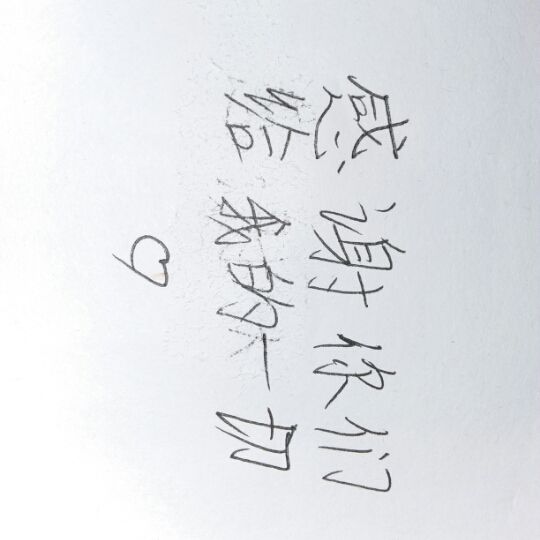 感谢你们
给我的一切